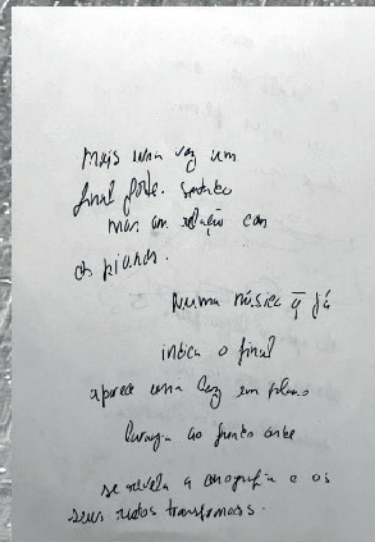 Mais uma vez um
final forte. sentido
mas em relação com
os pianos.
Numa música q̄ já
indica o final
aparece uma luz em plano
laranja ao fundo onde
se revela a cenografia e os
seus restos transformados.